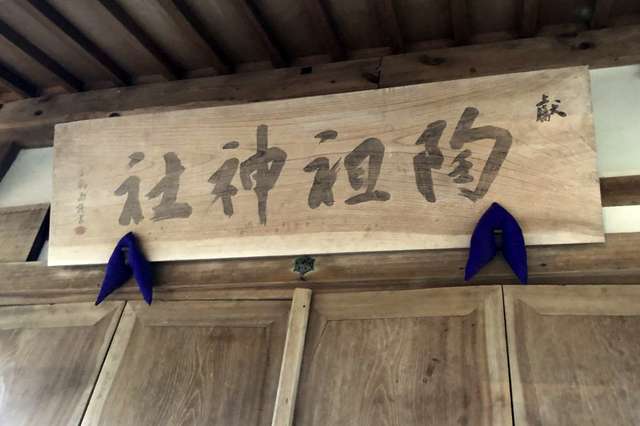 献
陶祖神社